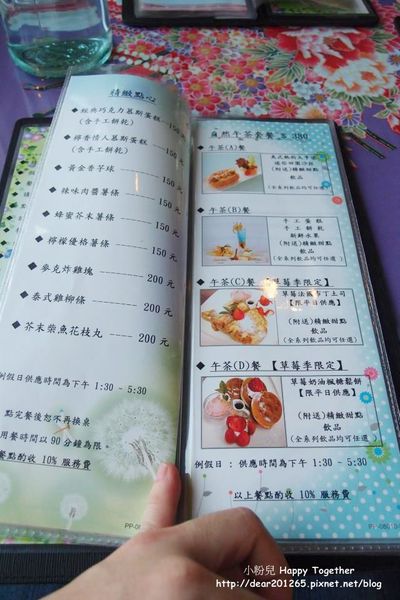 精緻點心
◆經典巧克力慕斯蛋糕 150元
(含手工餅乾)
◆檸香情人慕斯蛋糕 150元
(含手工餅乾)
◆黃金香芋球 150元
◆辣味肉醬薯條 150元
◆蜂蜜芥末薯條 150元
◆檸檬優格薯條 150元
◆麥克炸雞塊 200元
◆泰式雞柳條 200元
◆芥末柴魚花枝丸 200元
例假日供應時間為下午 1:30 - 5:30
點完餐後恕不再換桌
用餐時間以90分鐘為限
餐點酌收 10% 服務費
自然午茶套餐 $ 380
◆ 午茶(A)餐
(附送)精緻甜點
飲品
(全系列飲品均可任選)
◆ 午茶(B)餐
手工蛋糕
手工餅乾
新鮮水果
(附送)精緻甜點
飲品
(全系列飲品均可任選)
◆ 午茶(C)餐 【草莓季限定】
草莓法式布丁土司
【限平日供應】
(附送)精緻甜點
飲品
(全系列飲品均可任選)
◆ 午茶(D)餐 【草莓季限定】
草莓奶油楓糖鬆餅
【限平日供應】
(附送)精緻甜點
飲品
(全系列飲品均可任選)
例假日 : 供應時間為下午 1:30 - 5:30
以上餐點酌收 10% 服務費
小粉兒 Happy Together
http://dear201265.pixnet.net/blog